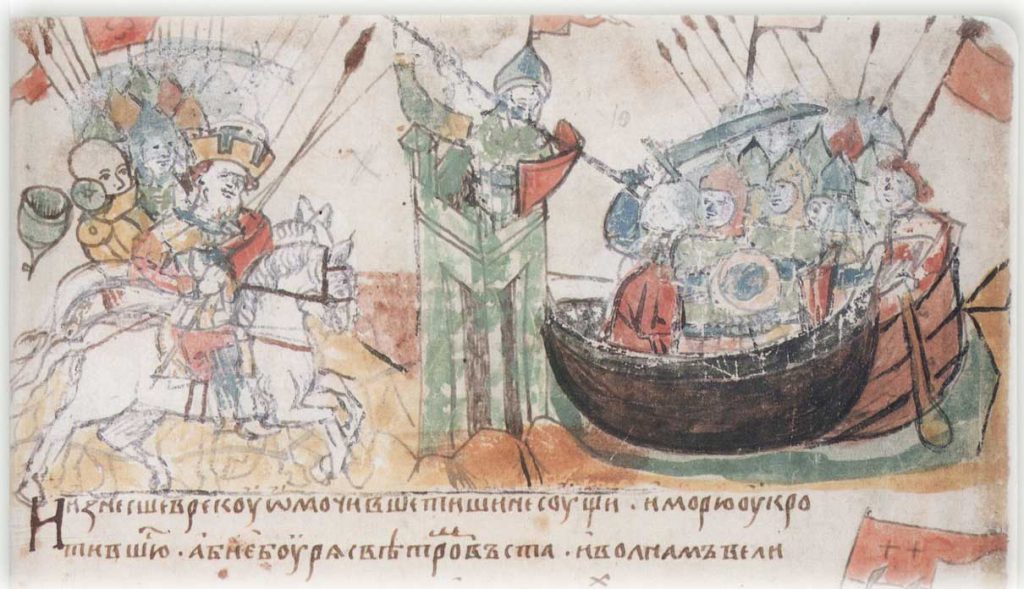 Ииꙁнесшеврекоуѡмочившетишинесоущи · иморюоукро
тившюⷭ҇ · абиебоурясвѣтроⷨвъста · иволнамъвели